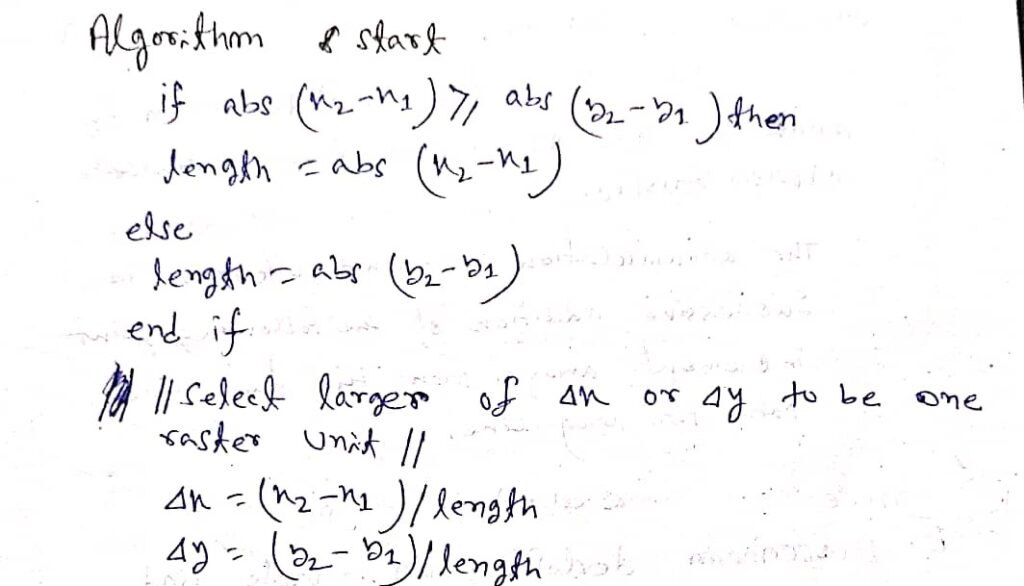 Algorithm & start
if abs (x₂-x₁) ≥ abs (y₂-y₁) then
length = abs (x₂-x₁)
else
length = abs (y₂-y₁)
end if
// Select larger of Δx or Δy to be one
raster unit //
Δx = (x₂-x₁)/length
Δy = (y₂-y₁)/length